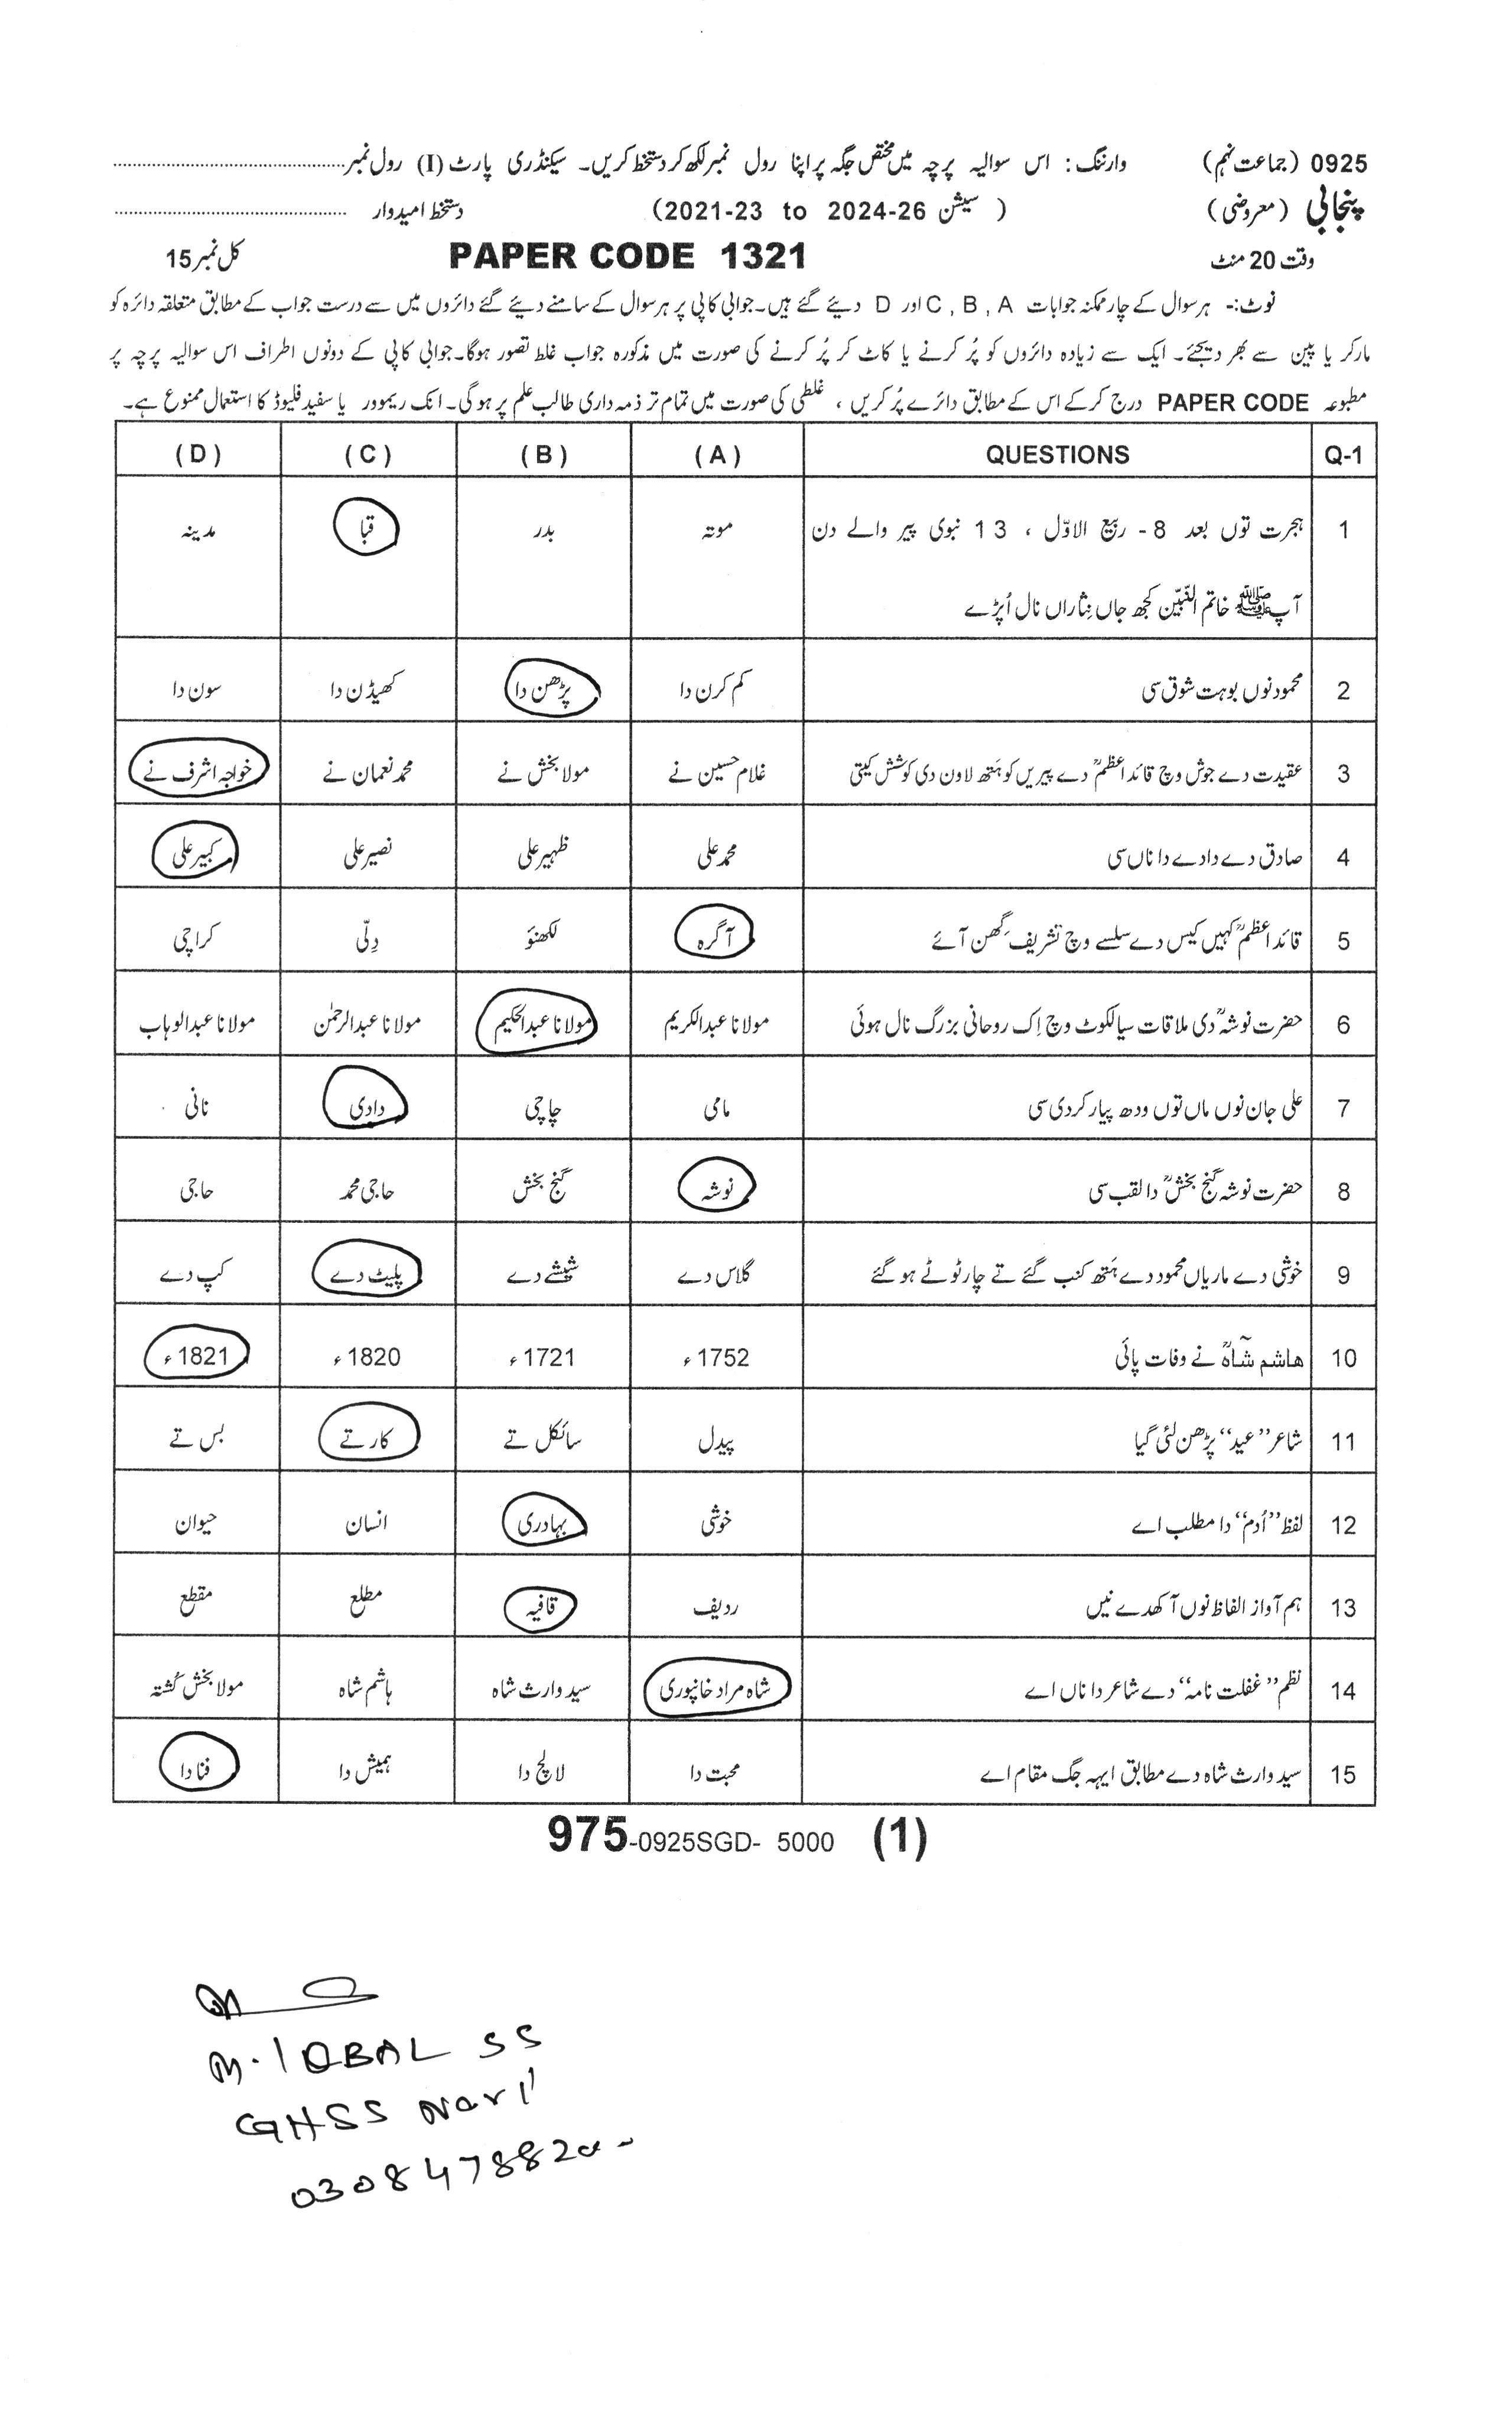 0925 (جماعت نہم) وارننگ: اس سوالیہ پرچہ میں مختص جگہ پر اپنا رول نمبر لکھ کر دستخط کریں۔ سیکنڈری پارٹ (I) رول نمبر
پنجابی (معروضی) (سیشن 2021-23 to 2024-26) دستخط امیدوار
وقت 20 منٹ PAPER CODE 1321 کل نمبر 15
نوٹ:- ہر سوال کے چار ممکنہ جوابات C , B , A اور D دیئے گئے ہیں۔ جوابی کاپی پر ہر سوال کے سامنے دیئے گئے دائروں میں سے درست جواب کے مطابق متعلقہ دائرہ کو
مارکر یا پین سے بھر دیجئے۔ ایک سے زیادہ دائروں کو پُر کرنے یا کاٹ کر پُر کرنے کی صورت میں مذکورہ جواب غلط تصور ہوگا۔ جوابی کاپی کے دونوں اطراف اس سوالیہ پرچہ پر
مطبوعہ PAPER CODE درج کر کے اس کے مطابق دائرے پُر کریں ، غلطی کی صورت میں تمام تر ذمہ داری طالب علم پر ہوگی۔ انک ریموور یا سفید فلیوڈ کا استعمال ممنوع ہے۔
Q-1 QUESTIONS (A) (B) (C) (D)
1 ہجرت توں بعد 8 - ربیع الاوّل ، 13 نبوی پیر والے دن موتہ بدر قبا مدینہ
آپ ﷺ خاتم النّبیّن کجھ جاں نِثاراں نال اُپڑے
2 محمود نوں بوہت شوق سی کم کرن دا پڑھن دا کھیڈن دا سون دا
3 عقیدت دے جوش وچ قائداعظمؒ دے پیریں کو ہتھ لاون دی کوشش کیتی غلام حسین نے مولا بخش نے محمد نعمان نے خواجہ اشرف نے
4 صادق دے دادے دا ناں سی محمد علی ظہیر علی نصیر علی کبیر علی
5 قائداعظمؒ کہیں کیس دے سلسے وچ تشریف گھن آئے آگرہ لکھنؤ دِلّی کراچی
6 حضرت نوشہؒ دی ملاقات سیالکوٹ وچ اِک روحانی بزرگ نال ہوئی مولانا عبدالکریم مولانا عبدالحکیم مولانا عبدالرحمٰن مولانا عبدالوہاب
7 علی جان نوں ماں توں ودھ پیار کردی سی مامی چاچی دادی نانی
8 حضرت نوشہ گنج بخشؒ دا لقب سی نوشہ گنج بخش حاجی محمد حاجی
9 خوشی دے ماریاں محمود دے ہتھ کنب گئے تے چار ٹوٹے ہو گئے گلاس دے شیشے دے پلیٹ دے کپ دے
10 ھاشم شاہؒ نے وفات پائی 1752ء 1721ء 1820ء 1821ء
11 شاعر ”عید“ پڑھن لئی گیا پیدل سائکل تے کار تے بس تے
12 لفظ ”اُدم“ دا مطلب اے خوشی بہادری انسان حیوان
13 ہم آواز الفاظ نوں آکھدے نیں ردیف قافیہ مطلع مقطع
14 نظم ”غفلت نامہ“ دے شاعر دا ناں اے شاہ مراد خانپوری سید وارث شاہ ہاشم شاہ مولا بخش کُشتہ
15 سید وارث شاہ دے مطابق ایہہ جگ مقام اے محبت دا لالچ دا ہمیش دا فنا دا
975-0925SGD- 5000 (1)
M. IQBAL SS
GHSS Nari